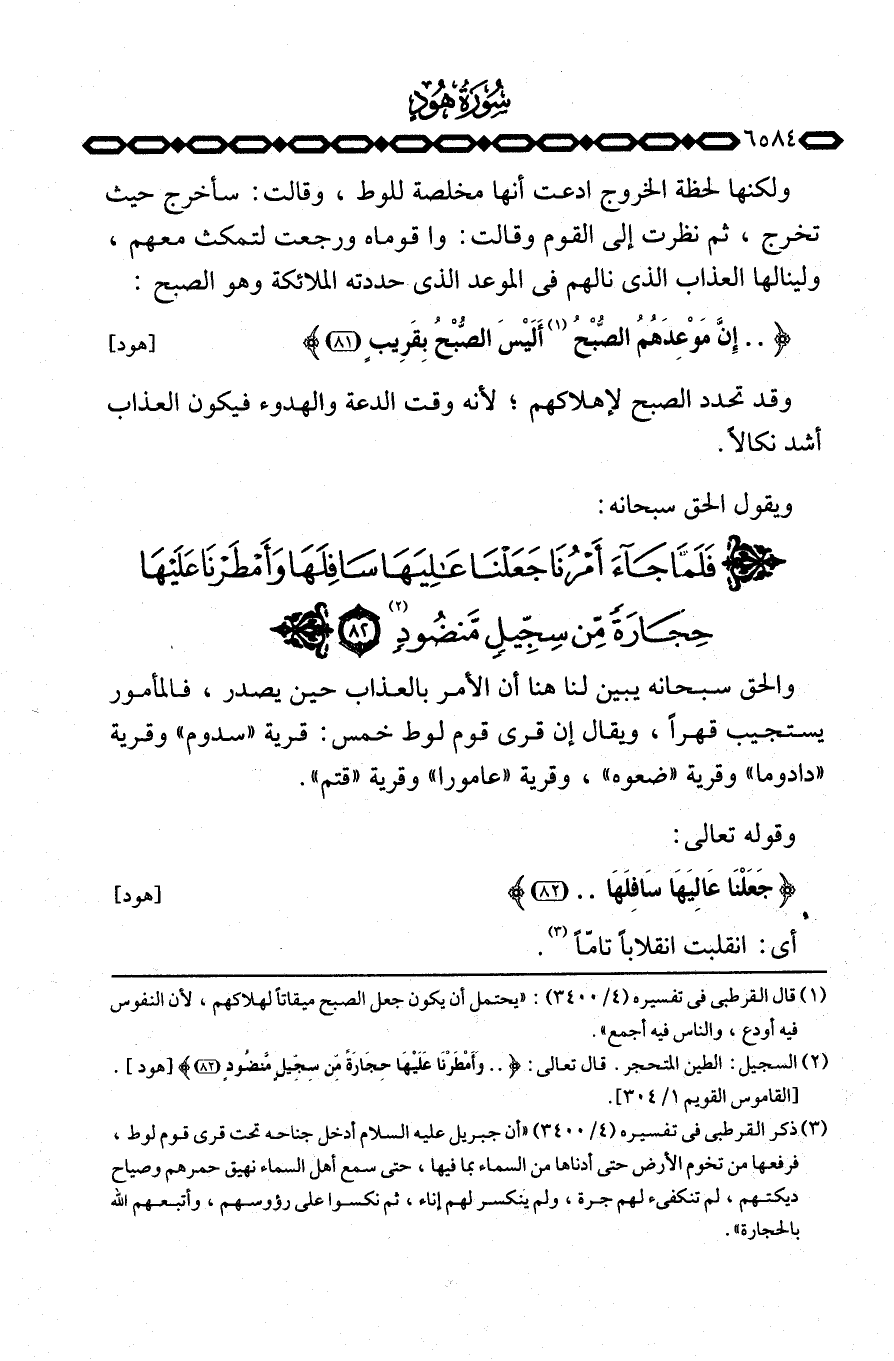 سُورَةُ هُودٍ
٦٥٨٤
ولكنها لحظة الخروج ادعت أنها مخلصة للوط ، وقالت : سأخرج حيث
تخرج ، ثم نظرت إلى القوم وقالت : وا قوماه ورجعت لتمكث معهم ،
ولينالها العذاب الذى نالهم فى الموعد الذى حددته الملائكة وهو الصبح :
﴿ .. إِنَّ مَوْعِدَهُمُ الصُّبْحُ (١) أَلَيْسَ الصُّبْحُ بِقَرِيبٍ (٨١) ﴾ [هود]
وقد تحدد الصبح لإهلاكهم ؛ لأنه وقت الدعة والهدوء فيكون العذاب
أشد نكالاً .
ويقول الحق سبحانه :
﴿ فَلَمَّا جَآءَ أَمْرُنَا جَعَلْنَا عَٰلِيَهَا سَافِلَهَا وَأَمْطَرْنَا عَلَيْهَا
حِجَارَةً مِّن سِجِّيلٍ مَّنضُودٍ (٢) ٨٢ ﴾
والحق سبحانه يبين لنا هنا أن الأمر بالعذاب حين يصدر ، فالمأمور
يستجيب قهراً ، ويقال إن قرى قوم لوط خمس : قرية «سدوم» وقرية
«دادوما» وقرية «ضعوه» ، وقرية «عامورا» وقرية «قتم» .
وقوله تعالى :
﴿ جَعَلْنَا عَالِيَهَا سَافِلَهَا .. (٨٢) ﴾ [هود]
أى : انقلبت انقلاباً تامّاً (٣) .
(١) قال القرطبى فى تفسيره (٤/ ٣٤٠٠) : «يحتمل أن يكون جعل الصبح ميقاتاً لهلاكهم ، لأن النفوس
فيه أودع ، والناس فيه أجمع» .
(٢) السجيل : الطين المتحجر . قال تعالى : ﴿ .. وَأَمْطَرْنَا عَلَيْهَا حِجَارَةً مِّن سِجِّيلٍ مَّنضُودٍ (٨٢) ﴾ [هود ] .
[القاموس القويم ١/ ٣٠٤] .
(٣) ذكر القرطبى فى تفسيره (٤/ ٣٤٠٠) «أن جبريل عليه السلام أدخل جناحه تحت قرى قوم لوط ،
فرفعها من تخوم الأرض حتى أدناها من السماء بما فيها ، حتى سمع أهل السماء نهيق حمرهم وصياح
ديكتهم ، لم تنكفىء لهم جرة ، ولم ينكسر لهم إناء ، ثم نكسوا على رؤوسهم ، وأتبعهم الله
بالحجارة» .